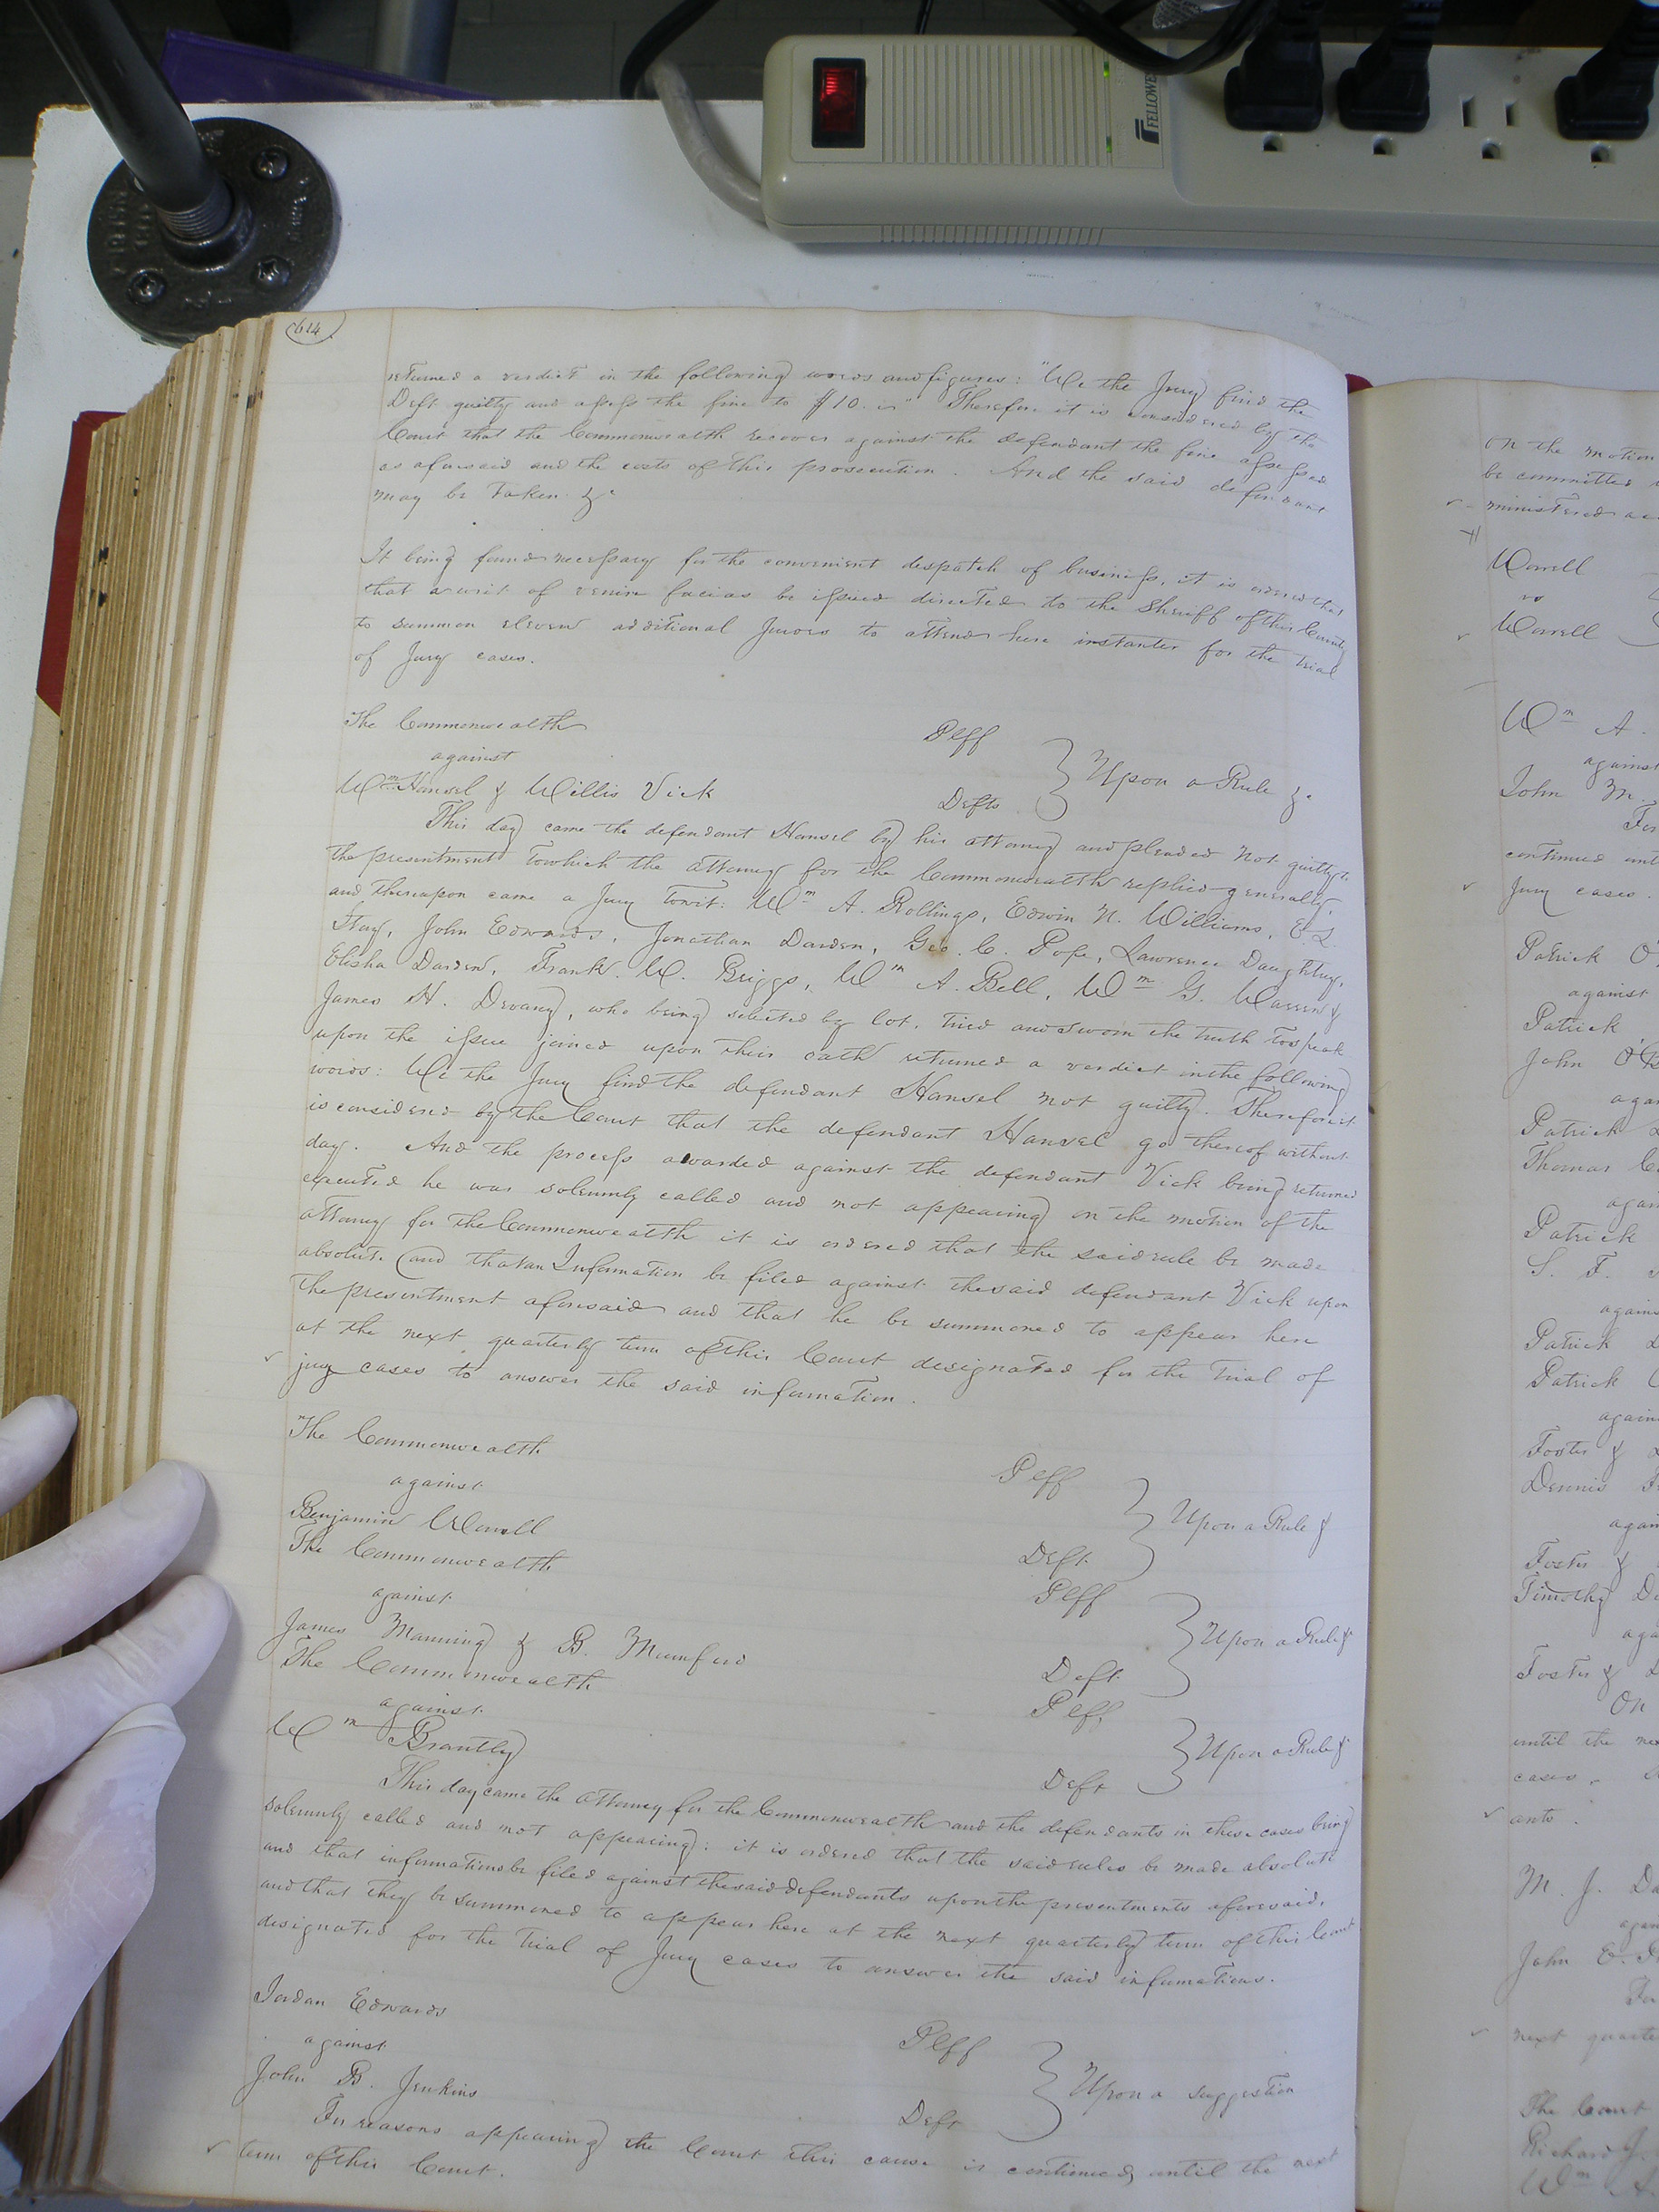 FELLOWES
614
returned a verdict in the following words and figures: "We the Jury find the
Deft guilty and assess the fine to $10." Therefore it is considered by the
Court that the Commonwealth recover against the defendant the fine assessed
as aforesaid and the costs of this prosecution. And the said defendant
may be taken &c
It being found necessary for the convenient despatch of business, it is ordered that
that a writ of venire facias be issued directed to the Sheriff of this County
to summon eleven additional Jurors to attend here instanter for the trial
of Jury cases.
The Commonwealth Plff
against } Upon a Rule &c
Wm Hansel & Willis Vick Defts
This day came the defendant Hansel by his attorney and pleaded not guilty to
the presentment to which the attorney for the Commonwealth replied generally,
and thereupon came a Jury towit: Wm A. Rollings, Edwin N. Williams, E. L.
Story, John Edwards, Jonathan Darden, Geo. C. Pope, Lawrence Daughtry,
Elisha Darden, Frank. W. Briggs, Wm A. Bell, Wm G. Warren &
James H. Devany, who being selected by lot, tried and sworn the truth to speak
upon the issue joined upon their oath returned a verdict in the following
words: We the Jury find the defendant Hansel not guilty. Therefore it
is considered by the Court that the defendant Hansel go thereof without
day. And the process awarded against the defendant Vick being returned
executed he was solemnly called and not appearing on the motion of the
attorney for the Commonwealth it is ordered that the said rule be made
absolute (and that an Information be filed against the said defendant Vick upon
the presentment aforesaid and that he be summoned to appear here
at the next quarterly term of this Court designated for the trial of
jury cases to answer the said information.
The Commonwealth Plff
against } Upon a Rule &
Benjamin Worrell Deft
The Commonwealth Plff
against } Upon a Rule &c
James Manning & B. Mumford Deft.
The Commonwealth Plff
against } Upon a Rule &c
Wm Brantly Deft
This day came the Attorney for the Commonwealth and the defendants in these cases being
solemnly called and not appearing: it is ordered that the said rules be made absolute
and that informations be filed against the said defendants upon the presentments aforesaid,
and that they be summoned to appear here at the next quarterly term of this Court
designated for the trial of Jury cases to answer the said informations.
Jordan Edwards Plff
against } Upon a suggestion
John B. Jenkins Deft
For reasons appearing to the Court this cause is continued until the next
term of this Court.
on the motion
be committed
ministered
Worrell
vs
Worrell
Wm A.
against
John M.
For
continued unt
Jury cases.
Patrick O'
against
Patrick
John O'B
again
Patrick
Thomas C
again
Patrick
S. F.
against
Patrick
Patrick
again
Foster &
Dennis
again
Foster &
Timothy D
aga
Foster &
On
until the ne
cases.
ants.
M. J. Da
again
John E.
For
next quarte
The Court
Richard J.
Wm A.